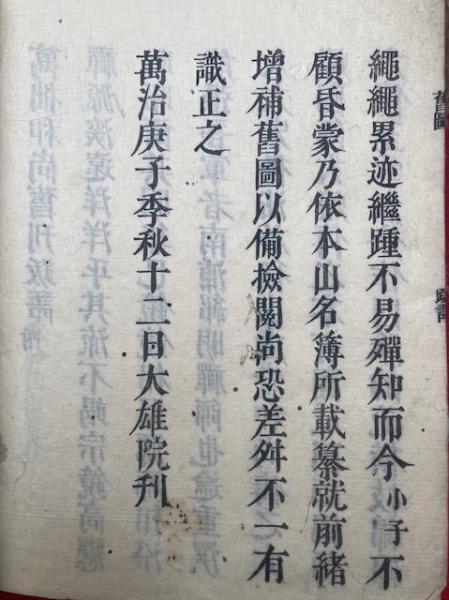 繩繩累迹繼踵不易殫知而今小子不
顧昏蒙乃依本山名簿所載纂就前緒
增補舊圖以備檢閱尚恐差舛不一有
識正之
萬治庚子季秋十二日大雄院刊